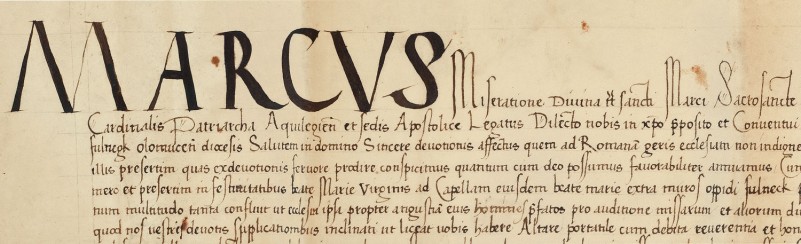 MARCVS Miseratione Divina tt sancti Marci Sacrosancte
Cardinalis Patriarcha Aquilegien et sedis Apostolice Legatus Dilecto nobis in xpo pposito et Conventui
fulnegk olomucen diocesis Salutem in domino Sincere devotionis affectus quem ad Romanā geris ecclesiam non indigne
illis presertim quas ex devotionis fervore prodire conspicimus quantum cum deo possumus favorabiliter annuamus Cum
mero et presertim in festivitatibus beate Marie Virginis ad Capellam eiusdem beate marie extra muros opidi fulneck
num multitudo tanta confluit ut ecclesia ipsa propter angustiā eius homines pfatos pro auditione missarum et aliorum
quod nos vestris devotis supplicationibus inclinati ut liceat vobis habere Altare portatile cum debita reverentia et